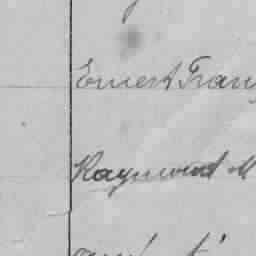 Ernest Fran
Raymond M